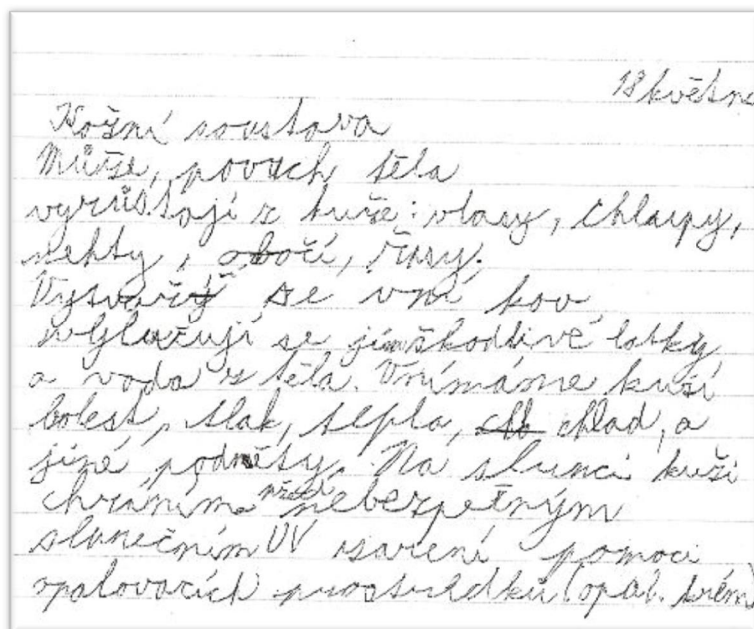 18 května
Kožní soustava
Kůže, povrch těla
vyrůstají z kůže: vlasy, chlupy,
nehty, obočí, řasy.
Vytváří se v ní kov,
vylučují se jím škodlivé latky
a voda z těla. Vnímáme kuží
bolest, tlak, tepla, chlad, a
jiné, podněty. Na slunci kuži
chráním před nebezpečným
slunečním UV zaření pomoci
opalovacích prostředku (opal. krém)